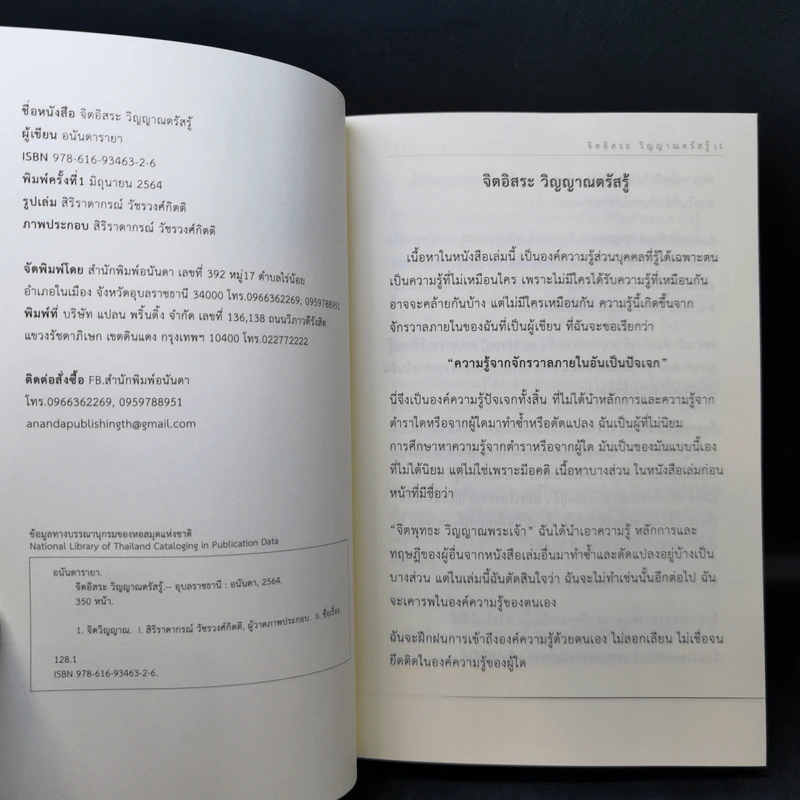 ชื่อหนังสือ จิตอิสระ วิญญาณตรัสรู้
ผู้เขียน อนันดารายา
ISBN 978-616-93463-2-6
พิมพ์ครั้งที่1 มิถุนายน 2564
รูปเล่ม สิริราดากรณ์ วัชรวงศ์กิตติ
ภาพประกอบ สิริราดากรณ์ วัชรวงศ์กิตติ
จัดพิมพ์โดย สำนักพิมพ์อนันดา เลขที่ 392 หมู่17 ตำบลไร่น้อย
อำเภอในเมือง จังหวัดอุบลราชธานี 34000 โทร.0966362269, 0959788951
พิมพ์ที่ บริษัท แปลน พริ้นติ้ง จำกัด เลขที่ 136,138 ถนนวิภาวดีรังสิต
แขวงรัชดาภิเษก เขตดินแดง กรุงเทพฯ 10400 โทร.022772222
ติดต่อสั่งซื้อ FB.สำนักพิมพ์อนันดา
โทร.0966362269, 0959788951
anandapublishingth@gmail.com
ข้อมูลทางบรรณานุกรมของหอสมุดแห่งชาติ
National Library of Thailand Cataloging in Publication Data
อนันดารายา.
จิตอิสระ วิญญาณตรัสรู้.-- อุบลราชธานี : อนันดา, 2564.
350 หน้า.
1. จิตวิญญาณ. I. สิริราดากรณ์ วัชรวงศ์กิตติ, ผู้วาดภาพประกอบ. II. ชื่อเรื่อง.
128.1
ISBN 978-616-93463-2-6.
จิตอิสระ วิญญาณตรัสรู้ |1
จิตอิสระ วิญญาณตรัสรู้
เนื้อหาในหนังสือเล่มนี้ เป็นองค์ความรู้ส่วนบุคคลที่รู้ได้เฉพาะตน
เป็นความรู้ที่ไม่เหมือนใคร เพราะไม่มีใครได้รับความรู้ที่เหมือนกัน
อาจจะคล้ายกันบ้าง แต่ไม่มีใครเหมือนกัน ความรู้นี้เกิดขึ้นจาก
จักรวาลภายในของฉันที่เป็นผู้เขียน ที่ฉันจะขอเรียกว่า
“ความรู้จากจักรวาลภายในอันเป็นปัจเจก”
นี่จึงเป็นองค์ความรู้ปัจเจกทั้งสิ้น ที่ไม่ได้นำหลักการและความรู้จาก
ตำราใดหรือจากผู้ใดมาทำซ้ำหรือดัดแปลง ฉันเป็นผู้ที่ไม่นิยม
การศึกษาหาความรู้จากตำราหรือจากผู้ใด มันเป็นของมันแบบนี้เอง
ที่ไม่ได้นิยม แต่ไม่ใช่เพราะมีอคติ เนื้อหาบางส่วน ในหนังสือเล่มก่อน
หน้าที่มีชื่อว่า
“จิตพุทธะ วิญญาณพระเจ้า” ฉันได้นำเอาความรู้ หลักการและ
ทฤษฎีของผู้อื่นจากหนังสือเล่มอื่นมาทำซ้ำและดัดแปลงอยู่บ้างเป็น
บางส่วน แต่ในเล่มนี้ฉันตัดสินใจว่า ฉันจะไม่ทำเช่นนั้นอีกต่อไป ฉัน
จะเคารพในองค์ความรู้ของตนเอง
ฉันจะฝึกฝนการเข้าถึงองค์ความรู้ด้วยตนเอง ไม่ลอกเลียน ไม่เชื่อจน
ยึดติดในองค์ความรู้ของผู้ใด